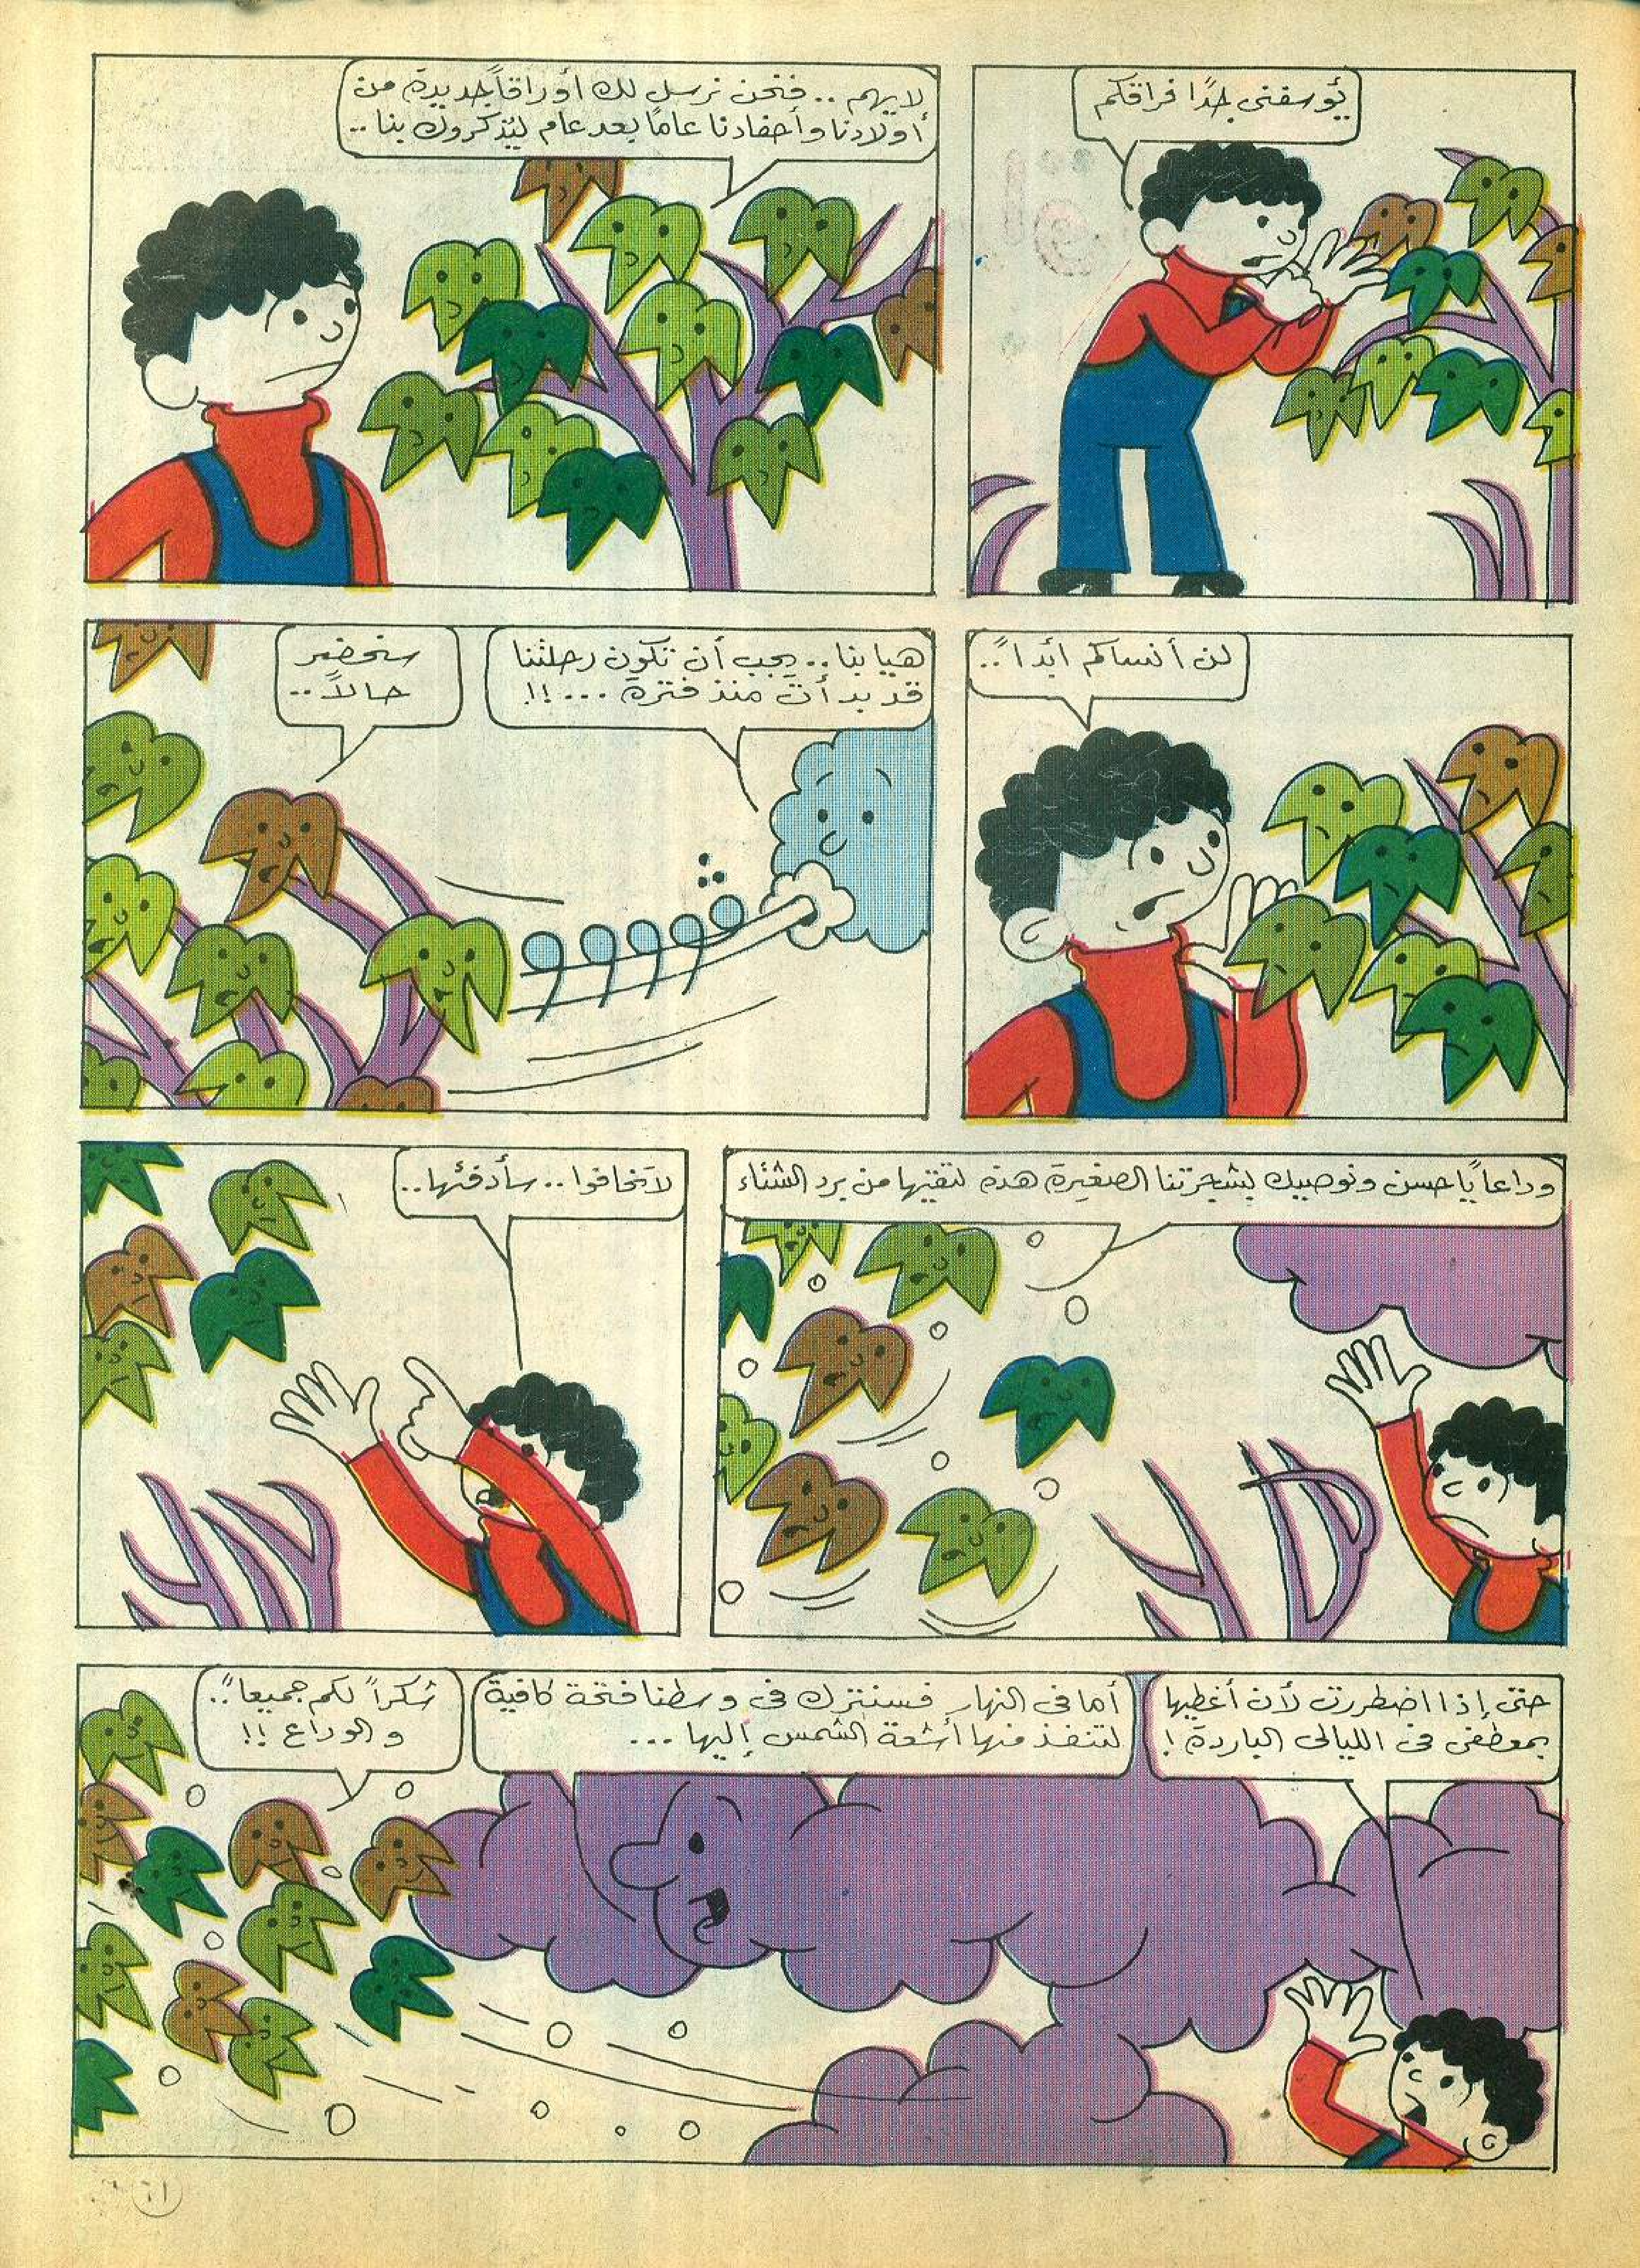 يؤسفنى جدًا فراقكم
لايهم .. فنحن نرسل لك أوراقاً جديدة من
أولادنا وأحفادنا عاماً بعد عام ليُذكروك بنا ..
لن أنساكم أبداً ..
هيا بنا .. يجب أن تكون رحلتنا
قد بدأت منذ فترة ... !!
سنحضر
حالاً ..
وداعاً يا حسن ونوصيك بشجرتنا الصغيرة هذه لتقيها من برد الشتاء
لا تخافوا .. سأدفئها ..
حتى إذا اضطررت لأن أغطيها
بمعطفى فى الليالى الباردة !
أما فى النهار فسنترك فى وسطنا فتحة كافية
لتنفذ منها أشعة الشمس إليها ...
شكراً لكم جميعاً ..
والوداع !!
٦١